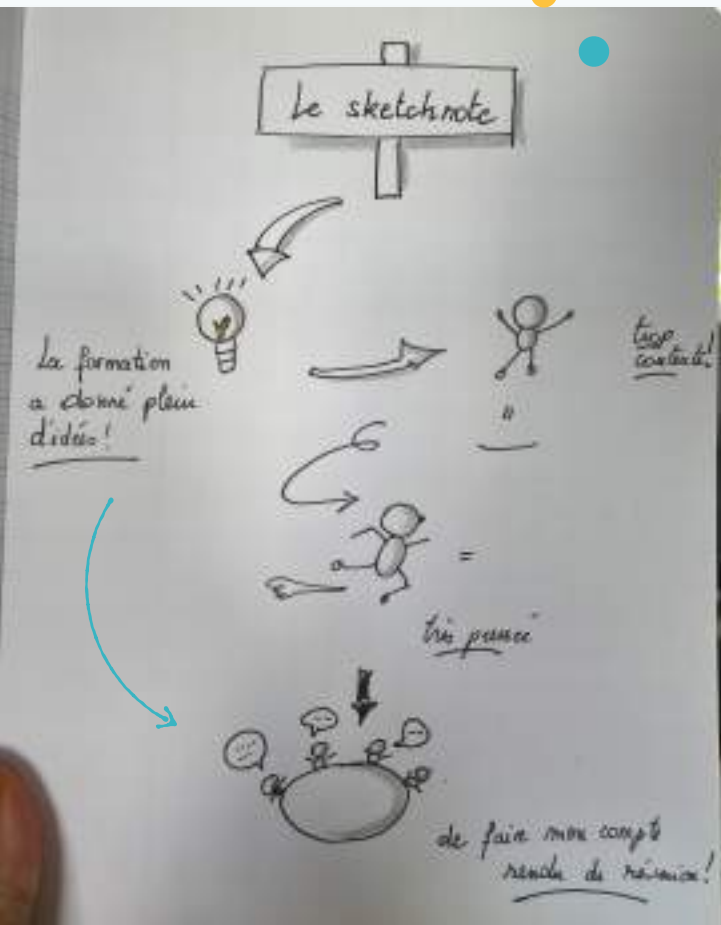 Le sketchnote
La formation
a donné plein
d'idées!
trop
contente!
=
très pressé
de faire mon compte
rendu de réunion!